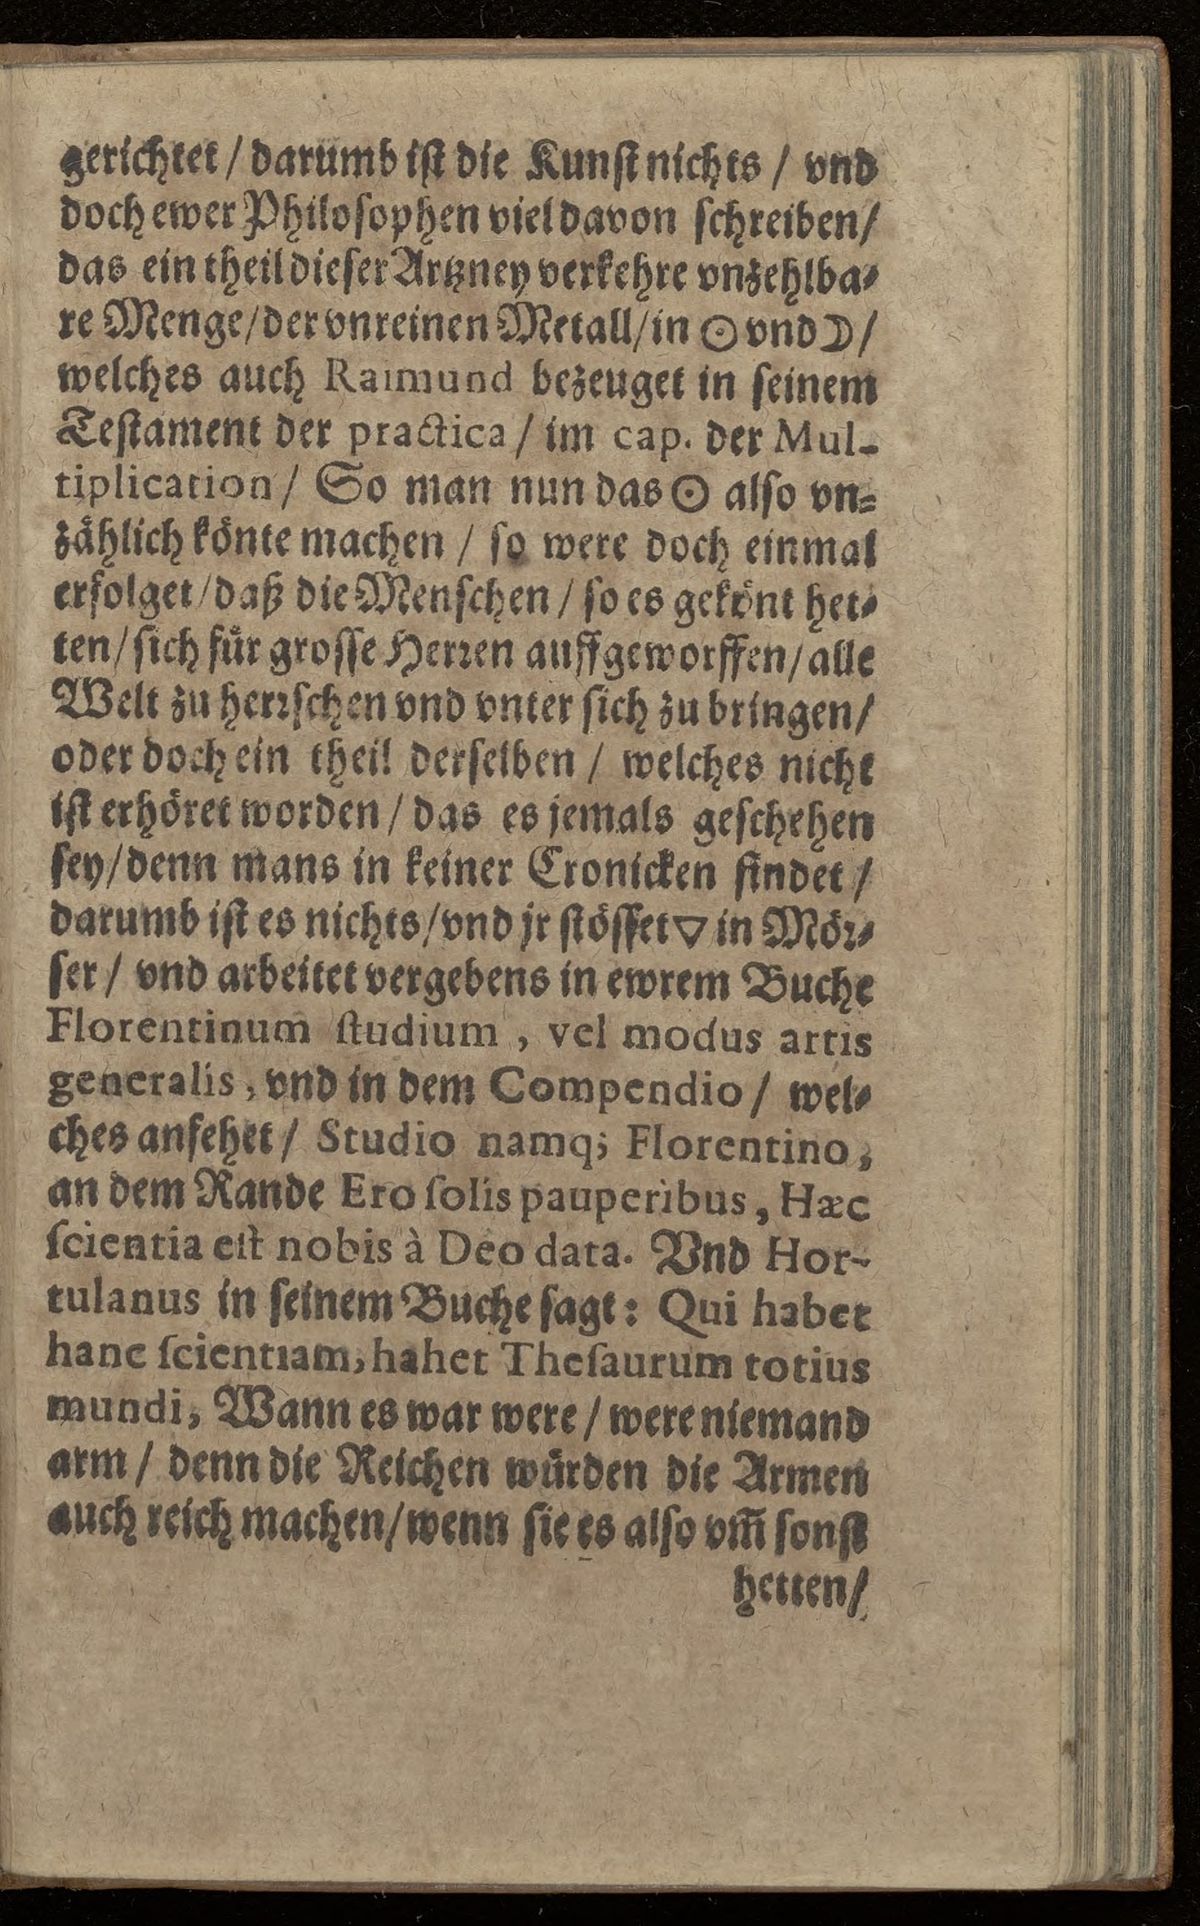 gerichtet / darumb iſt die Kunſt nichts / vnd
doch ewer Philoſophen viel davon ſchreiben/
das ein theil dieſer Artzney verkehre vnzehlba⸗
re Menge/der vnreinen Metall/in ☉ vnd ☽/
welches auch Raimund bezeuget in ſeinem
Teſtament der practica / im cap. der Mul-
tiplication / So man nun das ☉ alſo vn⸗
zaͤhlich koͤnte machen / ſo were doch einmal
erfolget/daß die Menſchen / ſo es gekoͤnt het⸗
ten/ſich fuͤr groſſe Herꝛen auffgeworffen/alle
Welt zu herꝛſchen vnd vnter ſich zu bringen/
oder doch ein theil derſelben / welches nicht
iſt erhoͤret worden / das es jemals geſchehen
ſey/denn mans in keiner Cronicken findet /
darumb iſt es nichts/vnd jr ſtoͤſſet 🜄 in Moͤꝛ⸗
ſer / vnd arbeitet vergebens in ewrem Buche
Florentinum ſtudium , vel modus artis
generalis, vnd in dem Compendio / wel⸗
ches anfehet / Studio namq; Florentino,
an dem Rande Ero ſolis pauperibus, Hæc
ſcientia eſt nobis à Deo data. Vnd Hor-
tulanus in ſeinem Buche ſagt: Qui habet
hanc ſcientiam, hahet Theſaurum totius
mundi, Wann es war were / were niemand
arm / denn die Reichen wuͤrden die Armen
auch reich machen/wenn ſie es alſo vm̃ ſonſt
hetten/